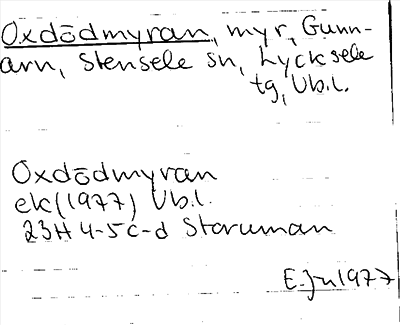 Oxdödmyran, myr, Gunn-
arn, Stensele sn, Lycksele
tg, Vb.l.
Oxdödmyran
ek (1977) Vb.l.
23H 4-5c-d Storuman
E. Jn 1977